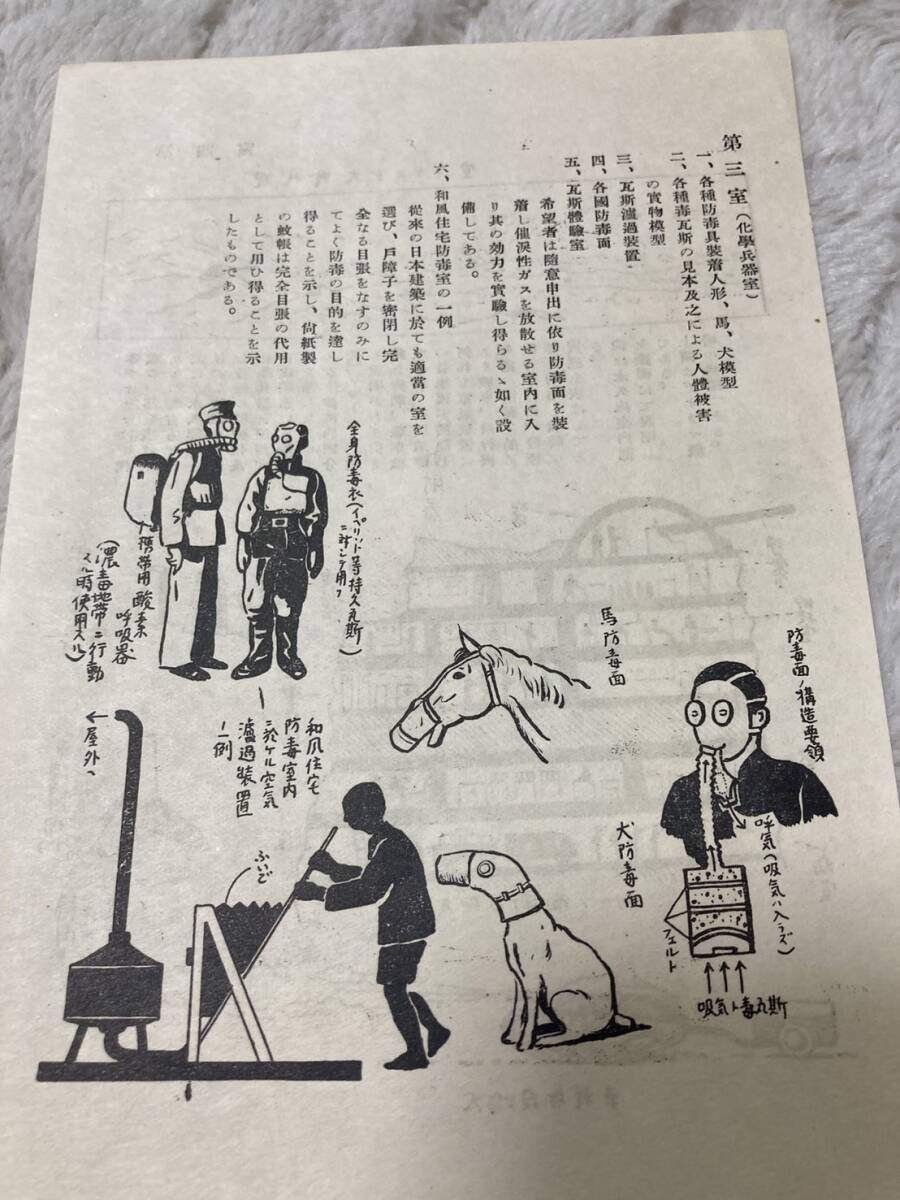 第三室(化學兵器室)
一、各種防毒具裝着人形、馬、犬模型
二、各種毒瓦斯の見本及之による人體被害
の實物模型
三、瓦斯濾過裝置
四、各國防毒面
五、瓦斯體驗室
希望者は隨意申出に依り防毒面を裝
着し催淚性ガスを放散せる室内に入
り其の効力を實驗し得らるゝ如く設
備してある。
六、和風住宅防毒室の一例
從來の日本建築に於ても適當の室を
選び、戸障子を密閉し完
全なる目張をなすのみに
てよく防毒の目的を達し
得ることを示し、尙紙製
の蚊帳は完全目張の代用
として用ひ得ることを示
したものである。
全身防毒衣(イペリット等持久瓦斯
ニ対シテ用フ)
携帯用酸素
呼吸器
(濃毒地帯ニ行動
スル時使用スル)
馬防毒面
防毒面ノ構造要領
和風住宅
防毒室内
ニ於ケル空気
濾過装置
ノ一例
←屋外へ
ふいご
犬防毒面
呼気(吸気ハ入ラズ)
フェルト
吸気ト毒瓦斯